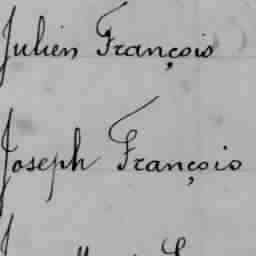 Julien François
Joseph François